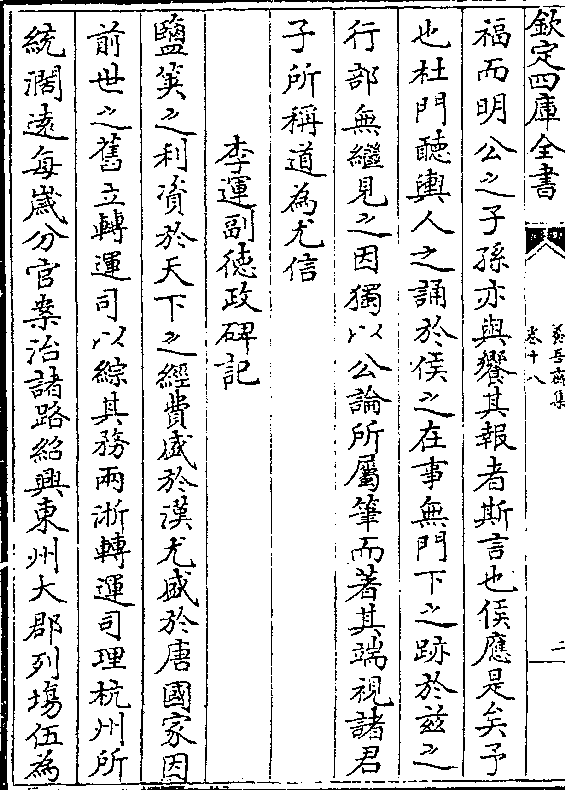 欽定四庫全書
養吾齋集
卷十八
二
福而明公之子孫亦與饗其報者斯言也侯應是矣予
也杜門聽輿人之誦於侯之在事無門下之跡於兹之
行部無繼見之因獨以公論所屬筆而著其端視諸君
子所稱道為尤信
李運副徳政碑記
鹽筴之利資於天下之經費盛於漢尤盛於唐國家因
前世之舊立轉運司以綜其務兩浙轉運司理杭州所
統濶逺每嵗分官案治諸路紹興東州大郡列塲伍為